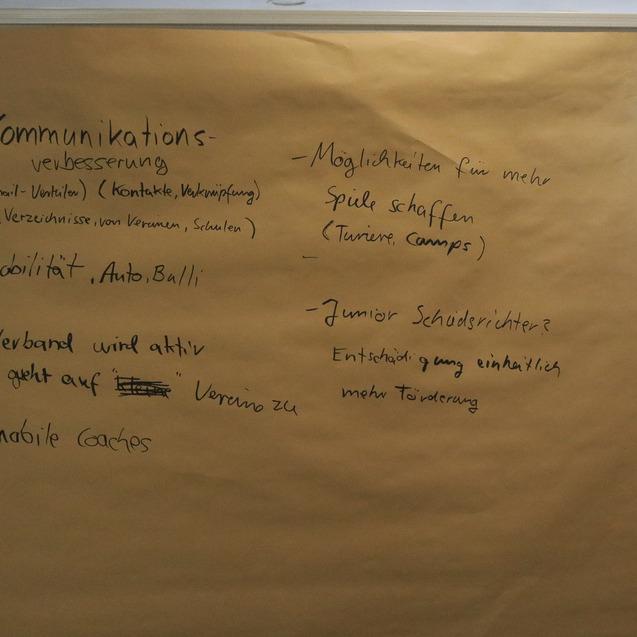 ommunikations-
verbesserung
ail-Verteiler) (Kontakte, Verknüpfung)
Verzeichnisse, von Vereinen, Schulen)
obilität, Auto, Bulli
erband wird aktiv
geht auf " " Vereine zu
mobile Coaches
- Möglichkeiten für mehr
Spiele schaffen
(Turiere, Camps)
-
- Junior Schiedsrichter?
Entschädigung einheitlich
mehr Förderung